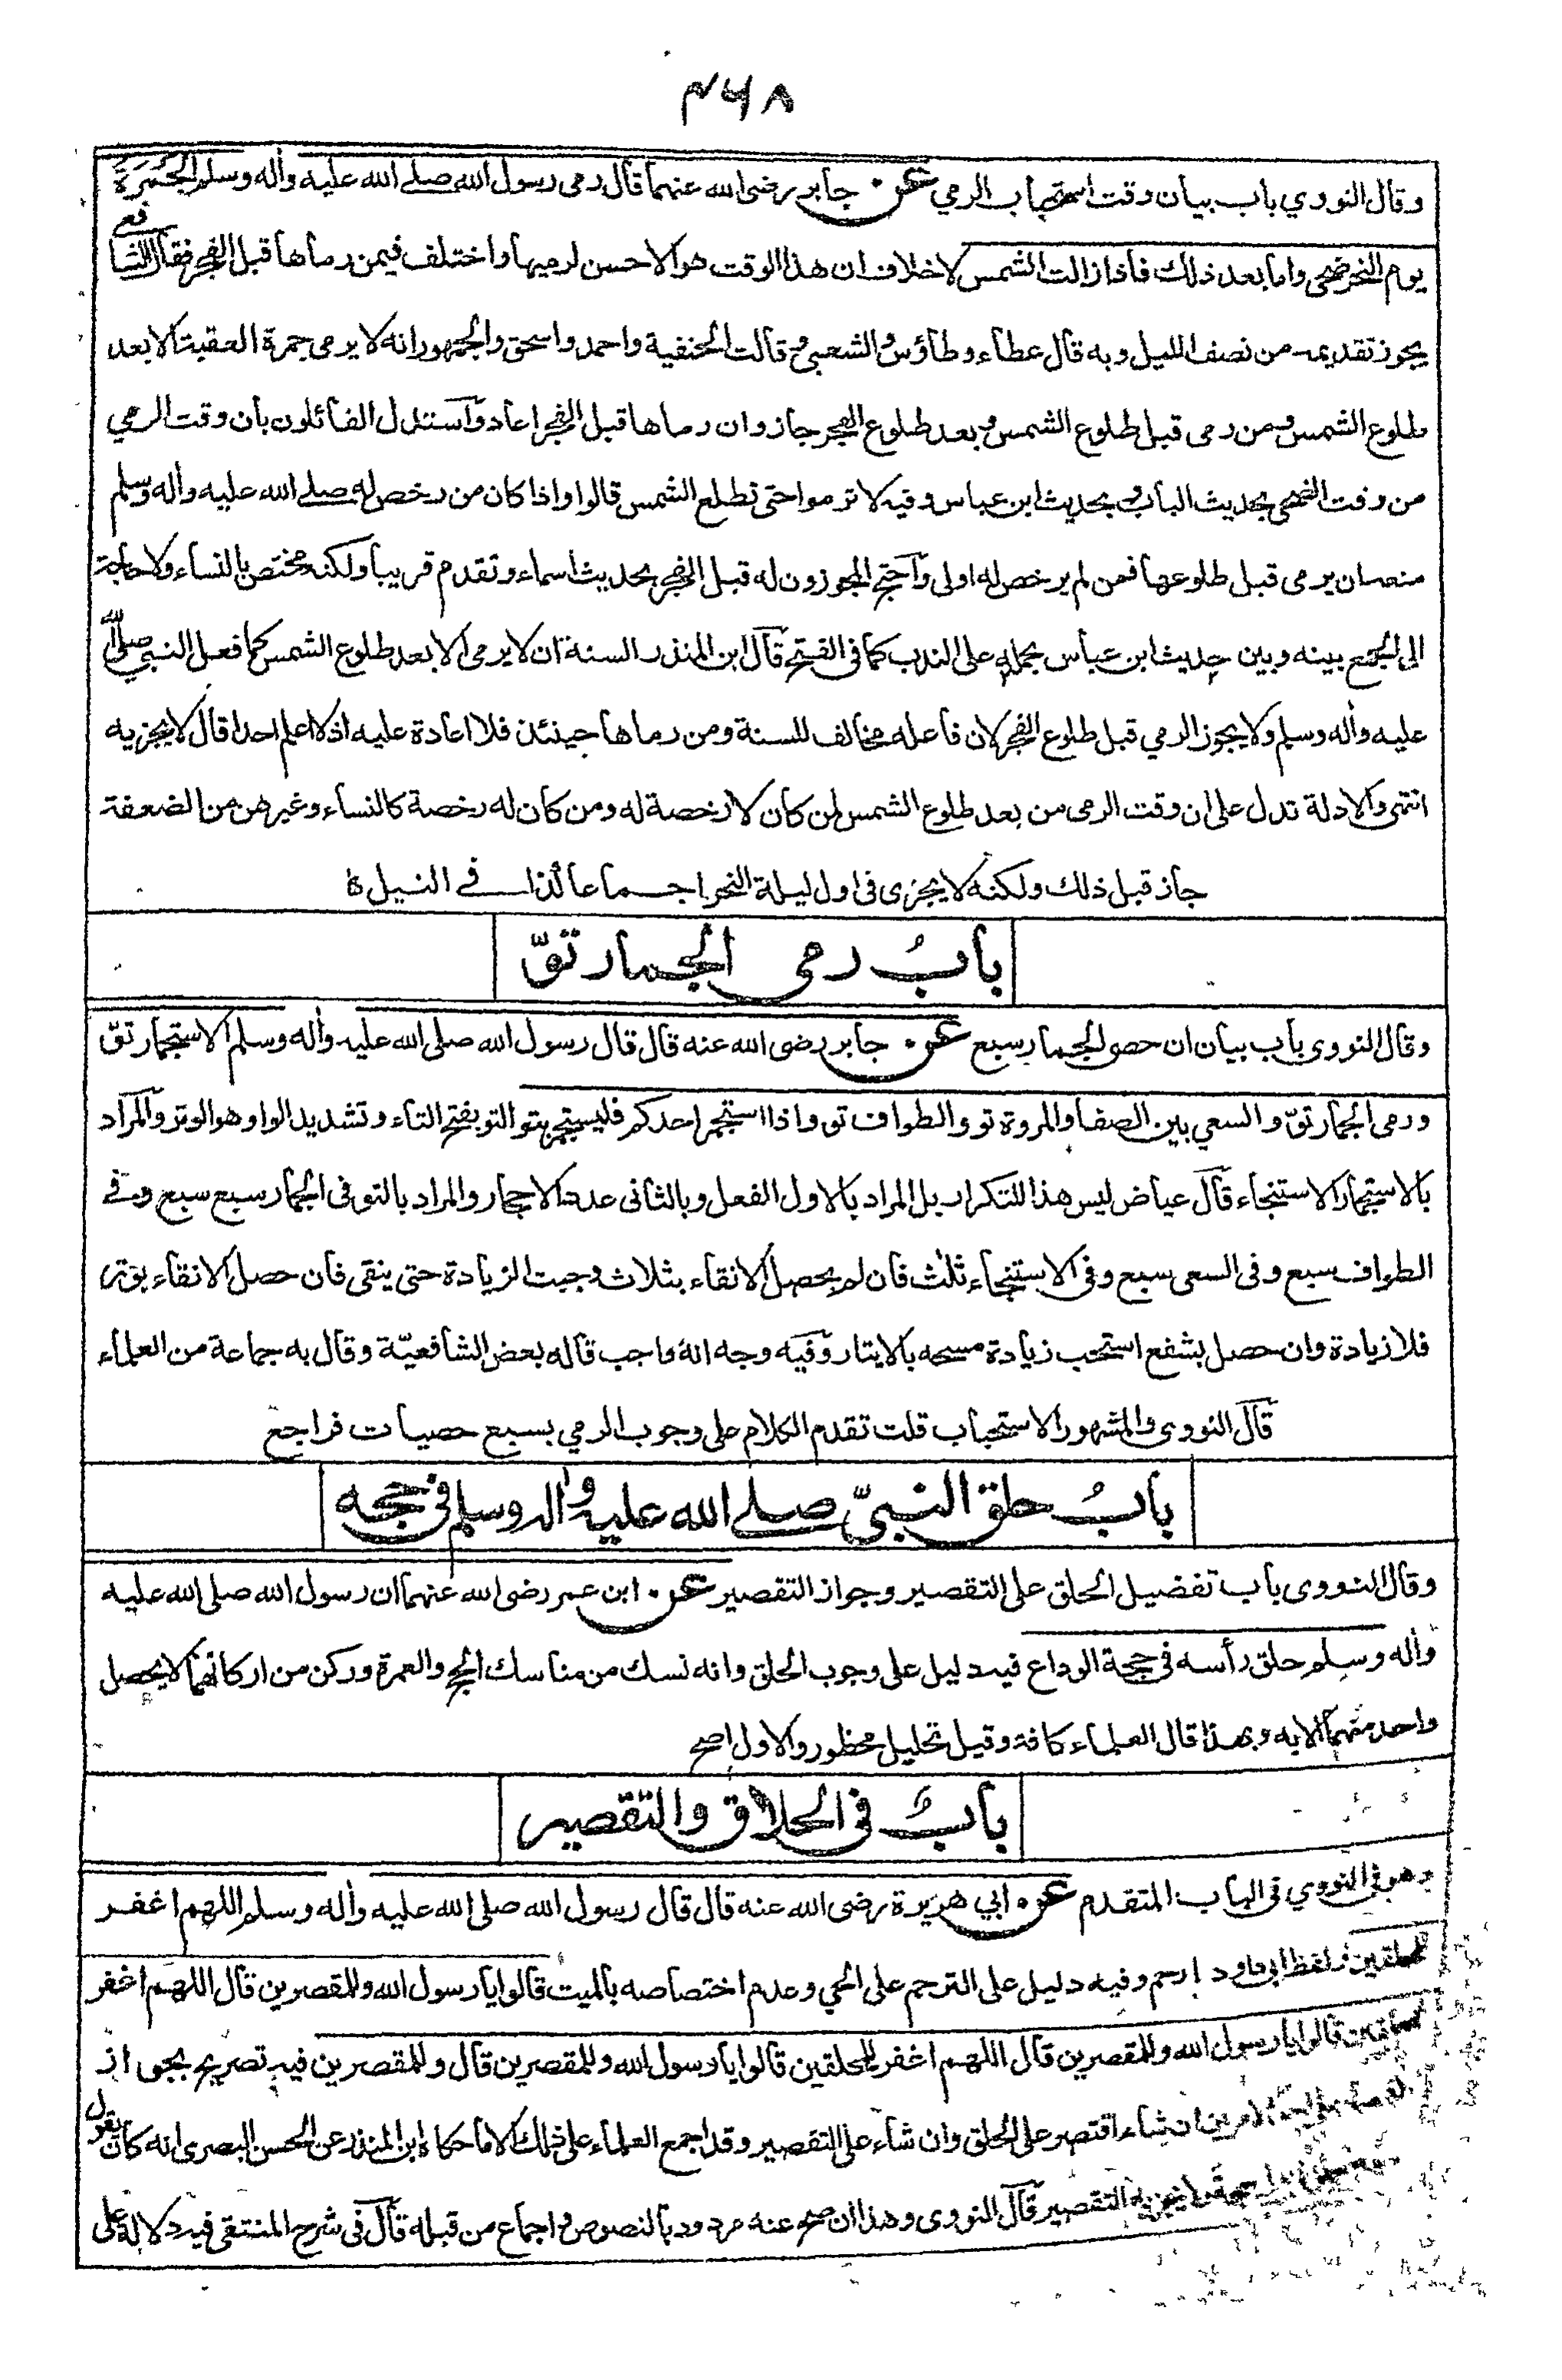 ۴۶۸
وقال النووي باب بيان وقت استحباب الرمي عن جابر رضى الله عنهما قال رمى رسول الله صلے الله عليه وأله وسلم الجمرة
يوم النحر ضحى واما بعد ذلك فاذا زالت الشمس لاخلاف ان هذا الوقت هو الاحسن لرميها واختلف فيمن رماها قبل الفجر فقال الشافعي
يجوز تقديمه من نصف الليل وبه قال عطاء وطاؤس والشعبي وقالت الحنفية واحمد واسحق والجمهور انه لا يرمى جمرة العقبة الا بعد
طلوع الشمس ومن رمى قبل طلوع الشمس وبعد طلوع الفجر جاز وان رماها قبل الفجر اعاد واستدل القائلون بان وقت الرمي
من وقت الضحى بحديث الباب وبحديث ابن عباس وفيه لا ترموا حتى تطلع الشمس قالوا واذا كان من رخص له صلے الله عليه وأله وسلم
منعه ان يرمى قبل طلوعها فمن لم يرخص له اولى واحتج المجوزون له قبل الفجر بحديث اسماء وتقدم قريبا ولكنه مختص بالنساء ولا حاجة
الى الجمع بينه وبين حديث ابن عباس بحمله على الندب كما فى الفتح قال ابن المنذر السنة ان لا يرمى الا بعد طلوع الشمس كما فعل النبي صلى الله
عليه وأله وسلم ولا يجوز الرمي قبل طلوع الفجر لان فاعله مخالف للسنة ومن رماها حينئذ فلا اعادة عليه اذ لا اعلم احدا قال لا يجزيه
انتهى والادلة تدل على ان وقت الرمى من بعد طلوع الشمس لمن كان لا رخصة له ومن كان له رخصة كالنساء وغيرهن من الضعفة
جاز قبل ذلك ولكنه لا يجزى فى اول ليلة النحر اجماعا كذا فے النيل
باب رمى الجمار توّ
وقال النووى باب بيان ان حصى الجمار سبع عن جابر رضى الله عنه قال قال رسول الله صلى الله عليه وأله وسلم الاستجمار توّ
ورمى الجمار توّ والسعي بين الصفا والمروة تو والطواف تو واذا استجمر احدكم فليستجمر بتو التو بفتح التاء وتشديد الواو وهو الوتر والمراد
بالاستجمار الاستنجاء قال عياض ليس هذا للتكرار بل المراد بالاول الفعل وبالثانى عدد الاحجار والمراد بالتو فى الجمار سبع سبع وفے
الطواف سبع وفى السعى سبع وفى الاستنجاء ثلث فان لم يحصل الانقاء بثلاث وجبت الزيادة حتى ينقى فان حصل الانقاء بوتر
فلا زيادة وان حصل بشفع استحب زيادة مسحه بالايتار وفيه وجه انه واجب قاله بعض الشافعيّة وقال به جماعة من العلماء
قال النووى والمشهور الاستحباب قلت تقدم الكلام على وجوب الرمي بسبع حصيات فراجع
بابُ حلق النبيّ صلے الله عليه وأله وسلم فى حجه
وقال النووى باب تفضيل الحلق على التقصير وجواز التقصير عن ابن عمر رضى الله عنهما ان رسول الله صلى الله عليه
وأله وسلم حلق رأسه فى حجة الوداع فيه دليل على وجوب الحلق وانه نسك من مناسك الحج والعمرة وركن من اركانهما لا يحصل
واحد منهما الا به وبهذا قال العلماء كافة وقيل تحليل محظور والاول اصح
بابٌ فى الحلاق والتقصير
وهو فى النووي فى الباب المتقدم عن ابي هريرة رضى الله عنه قال قال رسول الله صلى الله عليه وأله وسلم اللهم اغفر
للمحلقين ولفظ ابى داود ارحم وفيه دليل على الترحم على الحي وعدم اختصاصه بالميت قالوا يا رسول الله وللمقصرين قال اللهم اغفر
للمحلقين قالوا يا رسول الله وللمقصرين قال اللهم اغفر للمحلقين قالوا يا رسول الله وللمقصرين قال وللمقصرين فيه تصريح بجواز
الامرين ان شاء اقتصر على الحلق وان شاء على التقصير وقد اجمع العلماء على ذلك الا ما حكاه ابن المنذر عن الحسن البصرى انه كان يقول
التقصير قال النووى وهذا ان صح عنه مردود بالنصوص واجماع من قبله قال فى شرح المنتقى فيه دلالة على